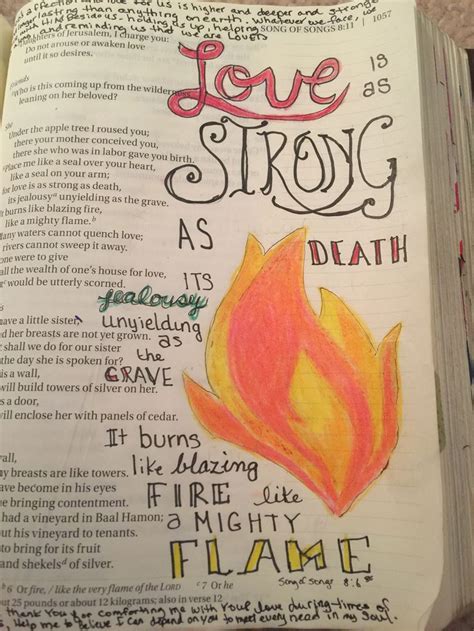 affection and love for us is higher and deeper and stronger
longer lasting than anything on earth. Whatever we face,
with us beside us, holding us up, helping
and reminding us that we are loved
SONG OF SONGS 8:11 | 1057
Daughters of Jerusalem, I charge you:
Do not arouse or awaken love
until it so desires.
Friends
Who is this coming up from the wilderness
leaning on her beloved?
She
Under the apple tree I roused you;
there your mother conceived you,
there she who was in labor gave you birth.
Place me like a seal over your heart,
like a seal on your arm;
for love is as strong as death,
its jealousy unyielding as the grave.
It burns like blazing fire,
like a mighty flame.
Many waters cannot quench love;
rivers cannot sweep it away.
one were to give
all the wealth of one's house for love,
it would be utterly scorned.
have a little sister,
and her breasts are not yet grown.
shall we do for our sister
the day she is spoken for?
is a wall,
will build towers of silver on her.
is a door,
will enclose her with panels of cedar.
all,
my breasts are like towers.
have become in his eyes
bringing contentment.
had a vineyard in Baal Hamon;
his vineyard to tenants.
to bring for its fruit
and shekels of silver.
b 6 Or fire, / like the very flame of the LORD c 7 Or he
about 25 pounds or about 12 kilograms; also in verse 12
Love is
as
STRONG
AS
DEATH
ITS
jealousy
unyielding
as
the
GRAVE
It burns
like blazing
FIRE like
a MIGHTY
FLAME
Song of Songs 8:6
thank you for comforting me with your love during times of
Help me to believe I can depend on you to meet every need in my soul.